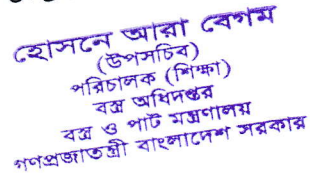 হোসনে আরা বেগম
(উপসচিব)
পরিচালক (শিক্ষা)
বস্ত্র অধিদপ্তর
বস্ত্র ও পাট মন্ত্রণালয়
গণপ্রজাতন্ত্রী বাংলাদেশ সরকার